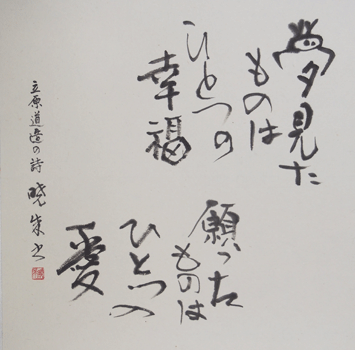 夢見た
ものは
ひとつの
幸福
願った
ものは
ひとつの
愛
立原道造の詩 暁